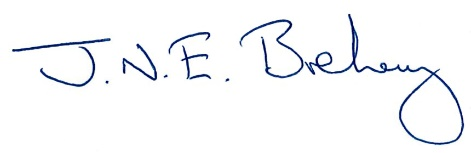 J.N.E. Breheny